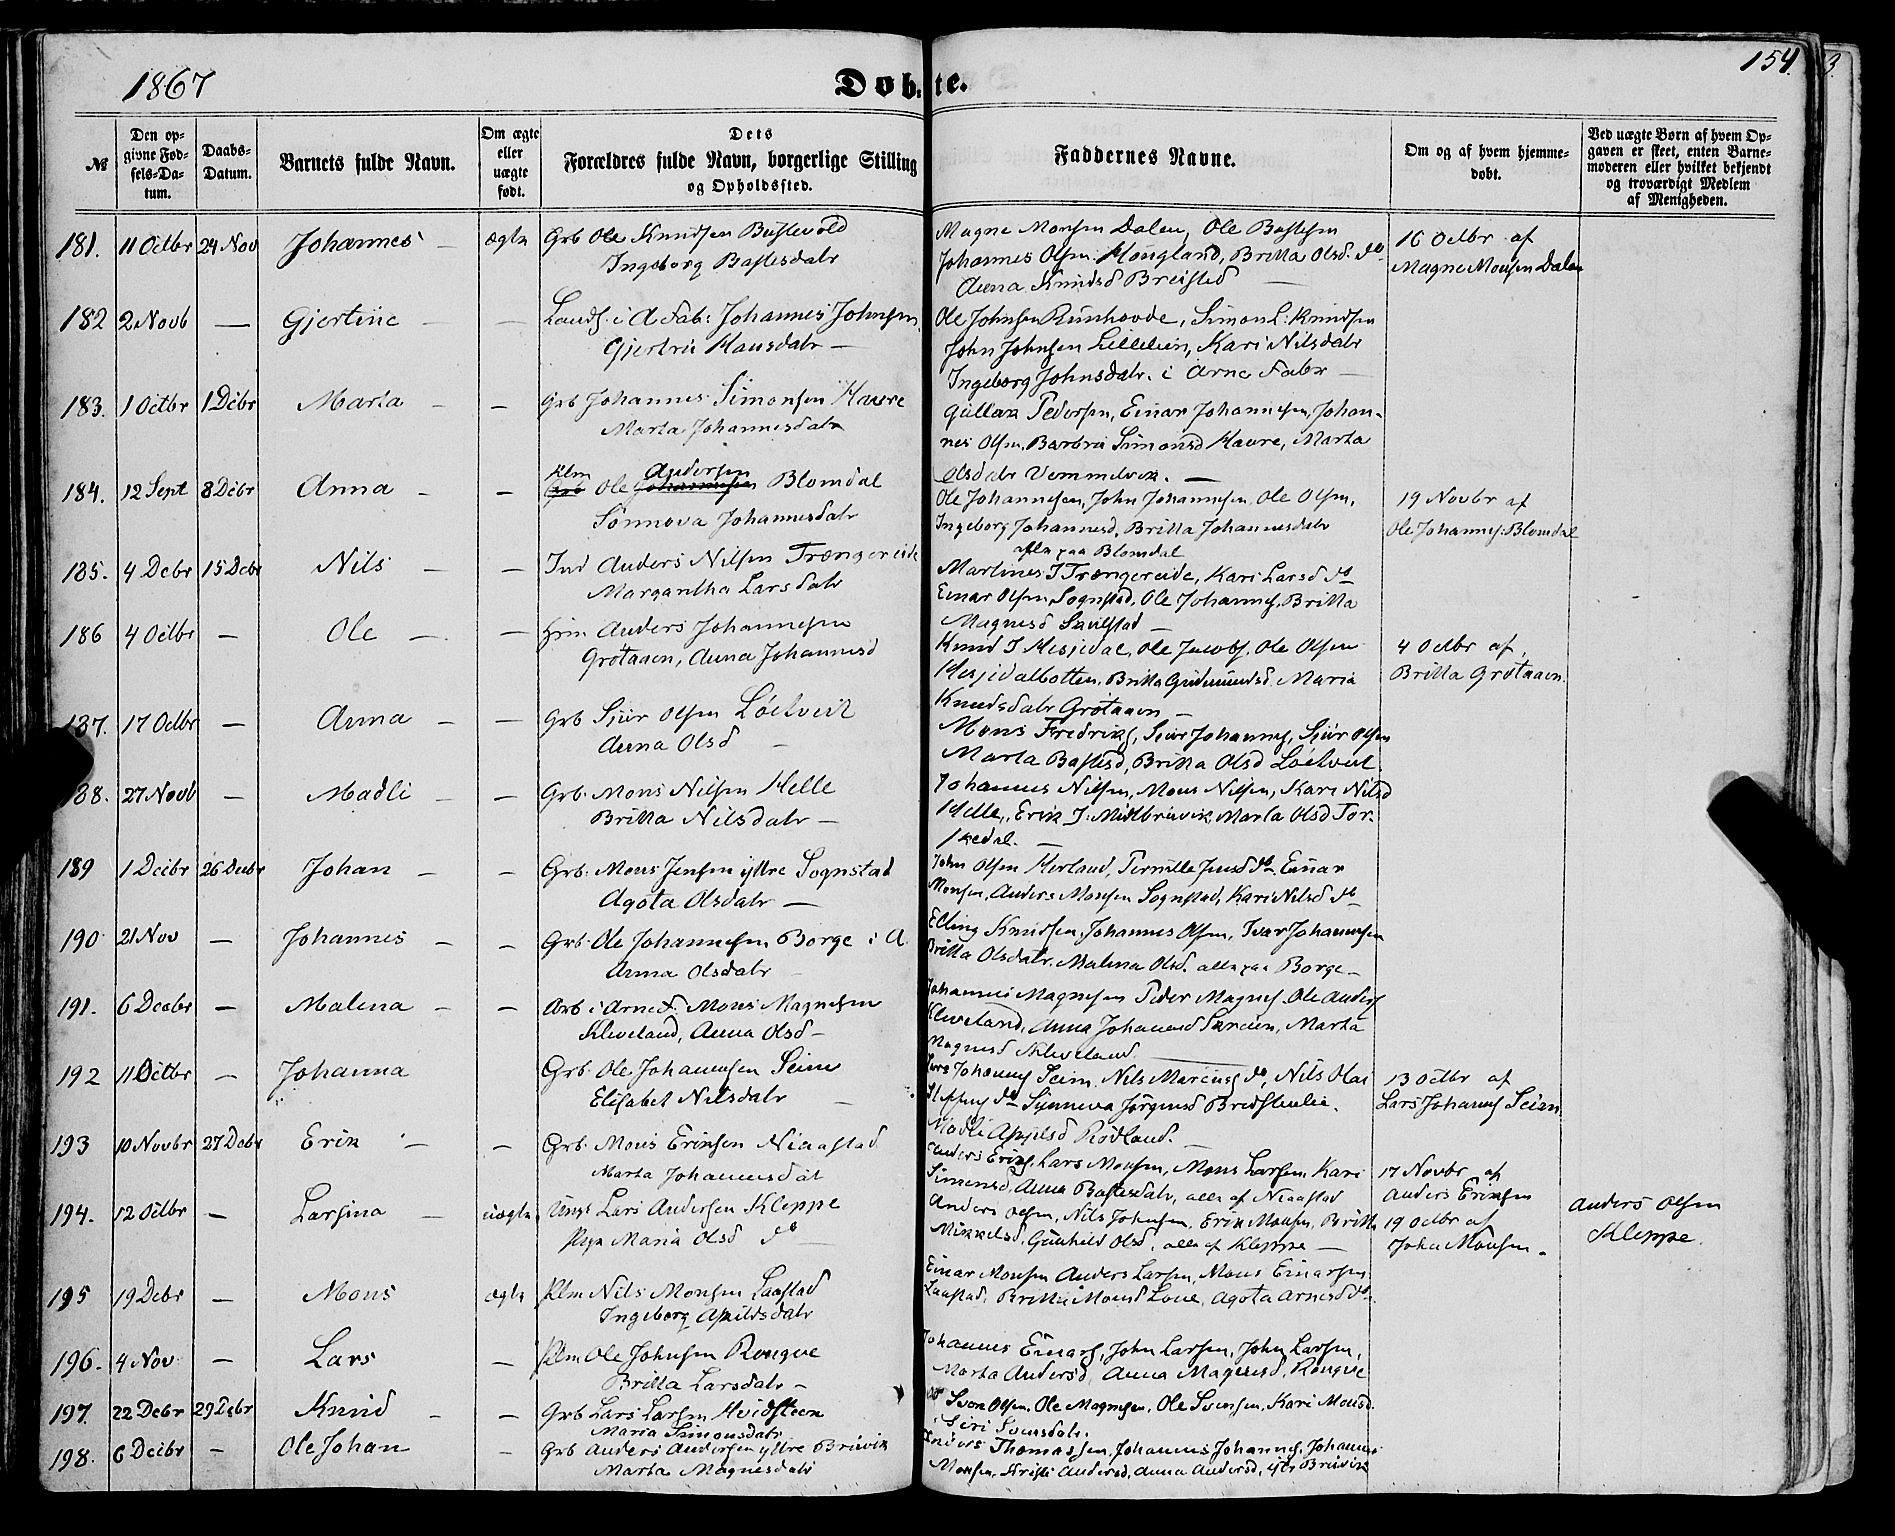 1867
Døbte.
154.
3.
№
Den opgivne Fødsels-Datum.
Daabs-Datum.
Barnets fulde Navn.
Om ægte eller uægte født.
Dets Forældres fulde Navn, borgerlige Stilling og Opholdssted.
Faddernes Navne.
Om og af hvem hjemmedøbt.
Ved uægte Børn af hvem Opgaven er skeet, enten Barnemoderen eller hvilket bekjendt og troværdigt Medlem af Menigheden.
181. 11 Octbr 24 Nov Johannes – ægte Grb Ole Knudsen
Ingeborg Bastesdatr
Magne Monsen Dalen, Ole Bastesen
Johannes Olsen Hougland, Britta Olsd. do
Anna Knudsd Breistad
16 Octbr af
Magne Monsen Dalen
182 2 Novb — Gjertine – — Johannes Johnsen
Gjertru Hansdatr –
Ole Johnsen Runhovde, Simon L. Knudsen
John Johnsen Lillelien, Kari Nilsdatr
Ingeborg Johnsdatr. i Arne Fabr –
183. 1 Octbr 1 Debr Marta – – Grb Johannes Simonsen Havre
Marta Johannesdatr
Gullak Pedersen, Einar Johannesen, Johan-
nes Olsen, Barbra Simonsd Havre, Marta
Olsdatr Vemmelvik. —
184. 12 Sept 8 Debr Anna – – Plm Grb Ole Andersen Johannesen Blomdal
Sønnova Johannesdatr
Ole Johannesen, John Johannesen, Ole Olsen,
Ingeborg Johannesd, Britta Johannesdatr
alle paa Blomdal
19 Novbr af
Ole Johannes. Blomdal
185. 4 Debr 15 Debr Nils – – Ind Anders Nilsen Trængereide
Margantha Larsdatr
Martines I Trængereide, Kari Larsd do
Einar Olsen Sognstad, Ole Johannes, Britta
Magnesd
186 4 Octbr – Ole – – Hm Anders Johannesen
Grøtaaen, Anna Johannesd
Knud I Hesjedal, Ole Jacobs, Ole Olsen
Hesjedalbotten, Britta Gudmundsd. Maria
Knudsdatr Grøtaaen –
4 Octbr af
Britta Grøtaaen.
187. 17 Octbr – Anna – – Grb Sjur Olsen Løtveit
Anna Olsd –
Mons Fredriks, Sjur Johannes, Sjur Olsen
Marta Bastesd, Britta Olsd Løtveit.
188. 27 Novb – Madli – – Grb. Mons Nilsen Helle
Britta Nilsdatr –
Johannes Nilsen, Mons Nilsen, Kari Nilsd
Helle, Erik I. Midtbruvik Marta Olsd Tor-
skedal. –
189 1 Decbr 26 Decbr Johan – – Grb. Mons Jensen yttre Sognstad
Agota Olsdatr –
John Olsen Herland, Pernille Jensd do Einar
Monsen, Anders Monsen Sognstad, Kari Nilsd do
190 21 Nov – Johannes – – Grb. Ole Johannesen Borge i A.
Anna Olsdatr –
Elling Knudsen, Johannes Olsen, Ivar Johannesen
Britta Olsdatr, Malena Olsd. alle paa Borge –
191. 6 Decbr – Malena – – Arb i Arne F. Mons Magnesen
Kleveland, Anna Olsd –
Johannes Magnesen Peder Magnes. Ole Anders
Kleveland, Anna Johannesd, Marta
Magnesd Kleveland
192 11 Octbr – Johanna Grb. Ole Johannesen Seim
Elisabet Nilsdatr –
Lars Johannes Seim, Nils Marcuss do, Nils Olai
do Synneva Jørgensd
Madli Rødland. –
13 Octbr af
Lars Johannes Seim
193 10 Novbr 27 Debr Erik – – Grb. Mons Eriksen Niaastad
Marta Johannesdat
Anders Eriks, Lars Monsen, Mons Larsen Kari
Simonsd, Anna Bastesdatr, alle af Niaastad
17 Novbr af
Anders Eriksen
194. 12 Octbr – Larsina – uægte Ungk Lars Andersen Kleppe
Pige Maria Olsd do
Anders Olsen, Nils Johnsen, Erik Monsen, Britta
Mikkelsd, Gunhild Olsd, alle af Kleppe –
19 Octbr af
John Monsen.
Anders Olsen
Kleppe.
195 19 Debr – Mons ægte Plm Nils Monsen Laastad
Ingeborg
Einar Monsen Anders Larsen, Mons Einarsen
Laastad, Britta Monsd Lone, Agota Arnesd do
196. 4 Nov – Lars – Plm Ole Johnsen Rongve
Britta Larsdatr –
Johannes Einars, John Larsen, John Larsen,
Marta Andersd, Anna Magnesd, Rongve
197. 22 Debr 29 Debr Knud – – Grb Lars Larsen Hvidsteen
Maria Simonsdatr
Sven Olsen, Ole Magnesen, Ole Svensen, Kari Monsd.
Siri Svensdatr.
198. 6 Decbr – Ole Johan – Grb Anders Andersen yttre Bruvik
Marta Magnesdatr
Anders Thomassen, Johannes Johannes, Johannes
Monsen, Kristi Andersd, Anna Andersd, ytr Bruvik